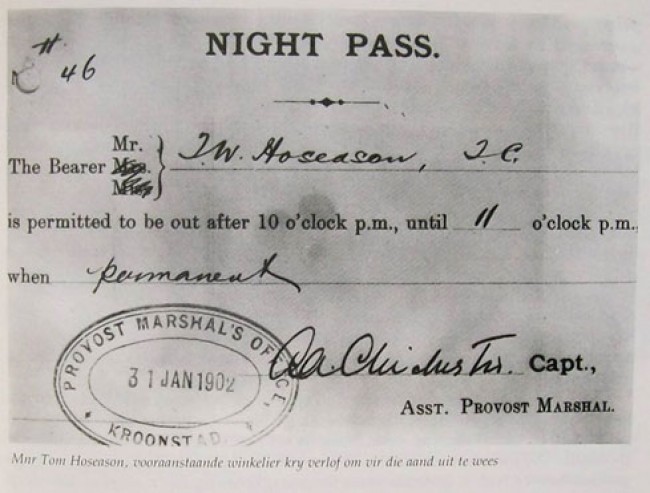 # 46
NIGHT PASS.
Mr.
The Bearer Mrs. } T.W. Hoseason, T.C.
Miss
is permitted to be out after 10 o'clock p.m., until 11 o'clock p.m.
when permanent
PROVOST MARSHAL'S OFFICE,
31 JAN 1902
KROONSTAD.
Capt.,
ASST. PROVOST MARSHAL.
Mnr Tom Hoseason, vooraanstaande winkelier kry verlof om vir die aand uit te wees